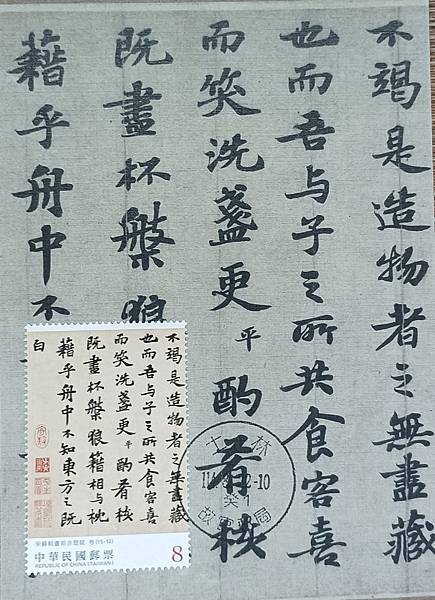 不竭是造物者之無盡藏
也而吾与子之所共食客喜
而笑洗盞更平酌肴核
既盡杯槃狼
藉乎舟中不
不竭是造物者之無盡藏
也而吾与子之所共食客喜
而笑洗盞更平酌肴核
既盡杯槃狼籍相与枕
藉乎舟中不知東方之既
白
宋蘇軾書前赤壁賦 卷(15-12)
中華民國郵票 8
REPUBLIC OF CHINA (TAIWAN)
士林